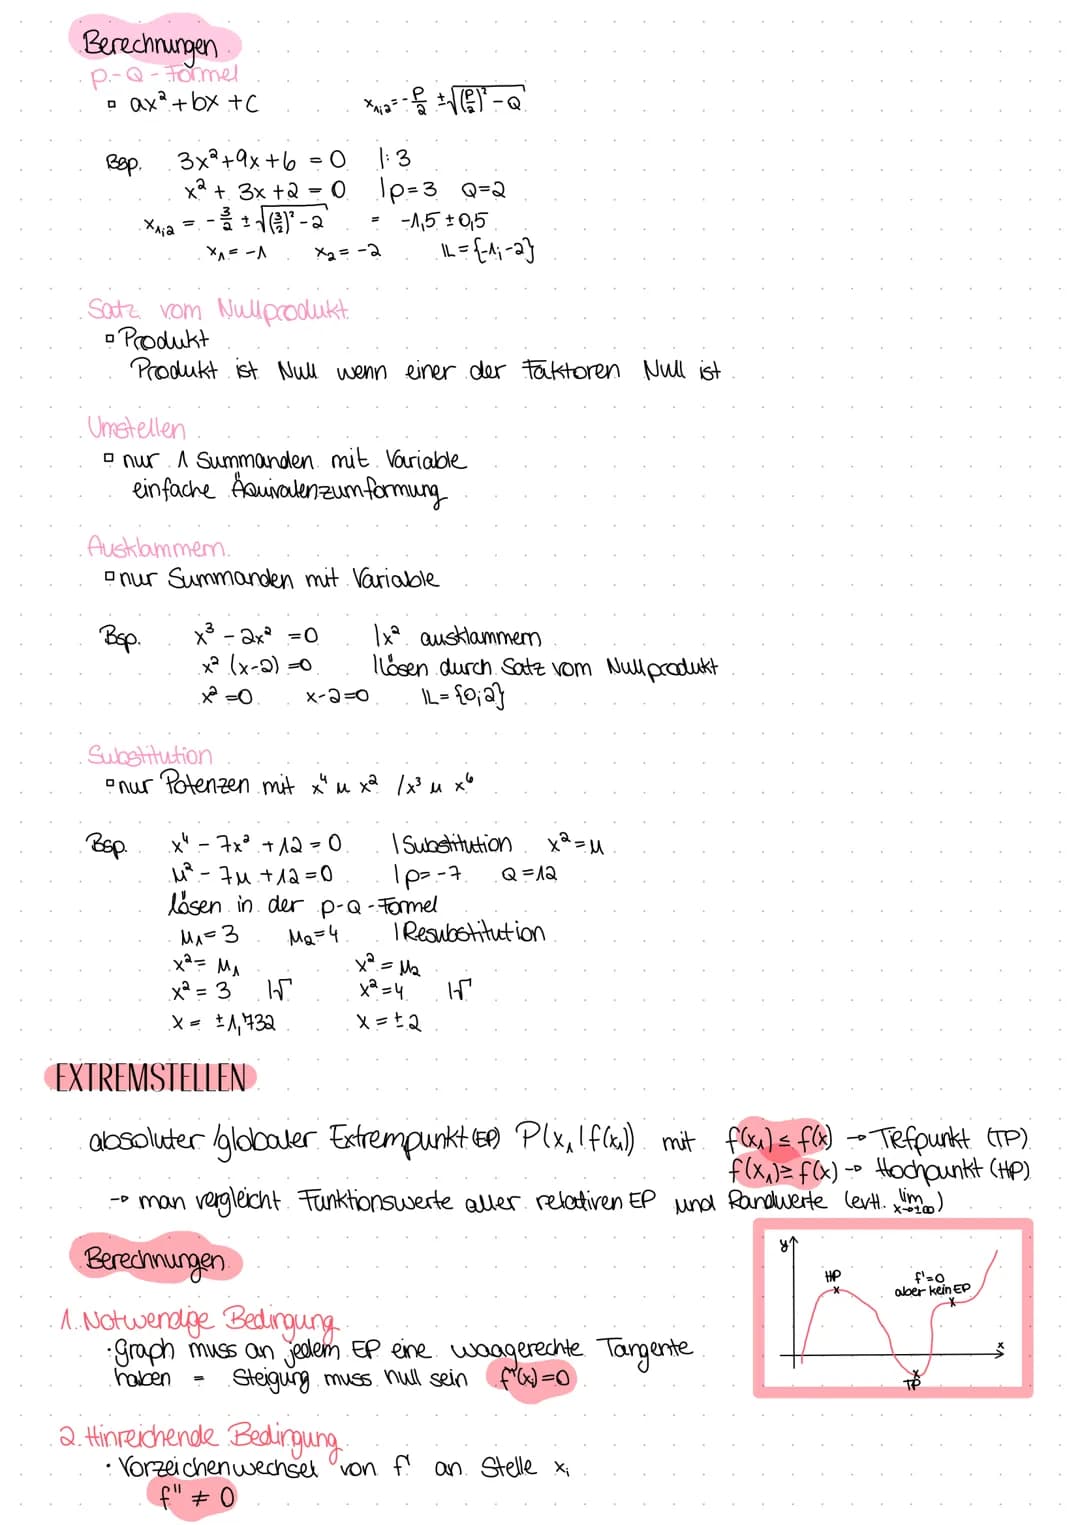 Berechnungen
p-Q-Formel
▫ ax²+bx+c x₁;₂=-p/2 ±√((p/2)²-Q)
Bsp. 3x²+9x+6=0 |:3
x²+3x+2=0 |p=3 Q=2
x₁;₂ = -3/2 ±√((3/2)²-2) = -1,5±0,5
x₁=-1 x₂=-2 𝕃={-1;-2}
Satz vom Nullprodukt
▫ Produkt
Produkt ist Null wenn einer der Faktoren Null ist
Umstellen
▫ nur 1 Summanden mit Variable
einfache Äquivalenzumformung
Ausklammern
▫ nur Summanden mit Variable
Bsp. x³-2x²=0 |x² ausklammern
x²(x-2)=0 |lösen durch Satz vom Nullprodukt
x²=0 x-2=0 𝕃={0;2}
Substitution
▫ nur Potenzen mit x⁴ u x² /x³ u x⁶
Bsp. x⁴-7x²+12=0 |Substitution x²=u
u²-7u+12=0 |p=-7 Q=12
lösen in der p-Q-Formel
u₁=3 u₂=4 |Resubstitution
x²=u₁ x²=u₂
x²=3 |√ x²=4 |√
x=±1,732 x=±2
EXTREMSTELLEN
absoluter/globaler Extrempunkt (EP) P(x₁|f(x₁)) mit f(x₁)≤f(x) → Tiefpunkt (TP)
f(x₁)≥f(x) → Hochpunkt (HP)
→ man vergleicht Funktionswerte aller relativen EP und Randwerte (evtl. lim x→±∞)
Berechnungen
y
HP
f'=0
aber kein EP
x
TP
1. Notwendige Bedingung
· Graph muss an jedem EP eine waagerechte Tangente
haben = Steigung muss null sein f'(xᵢ)=0
2. Hinreichende Bedingung
· Vorzeichenwechsel von f' an Stelle xᵢ
f''≠0